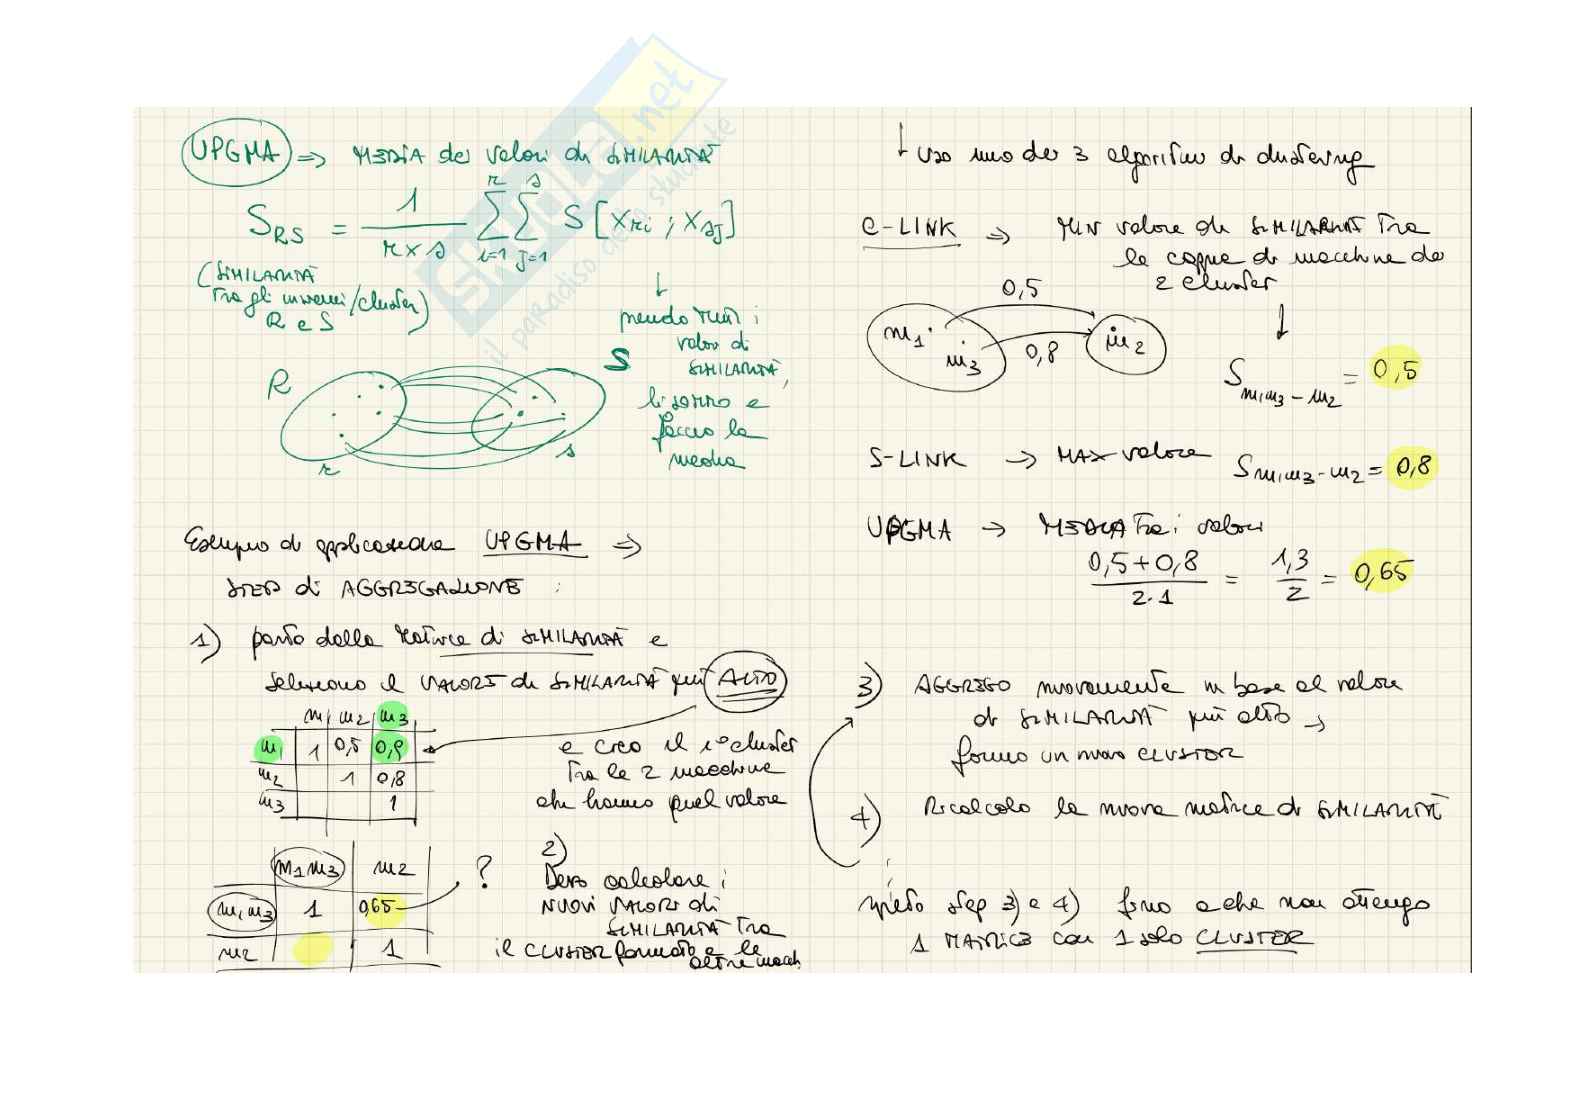 UPGMA => MEDIA dei valori di SIMILARITÀ
S_RS = 1 / r×s Σ_{i=1}^{r} Σ_{j=1}^{s} S [x_ri ; x_sj]
(SIMILARITÀ
tra gli insiemi/cluster)
R e S
↓
prendo tutti i
valori di
SIMILARITÀ,
li sommo e
faccio la
media
R S
r s
Esempio di applicazione UPGMA =>
STEP di AGGREGAZIONE :
1) parto dalla matrice di SIMILARITÀ e
seleziono il VALORE di SIMILARITÀ più ALTO
m1 m2 m3
m1 1 0,5 0,9
m2 1 0,8
m3 1
e creo il 1° cluster
tra le 2 macchine
che hanno quel valore
m1m3 m2
m1m3 1 0,65 ?
m2 1
2)
Devo calcolare i
NUOVI VALORI di
SIMILARITÀ tra
il CLUSTER formato e le
altre macch
↓ uso uno dei 3 algoritmi di clustering
C-LINK => MIN valore di SIMILARITÀ tra
le coppie di macchine dei
2 cluster
0,5
m1 m3 0,8 m2
↓
S m1m3-m2 = 0,5
S-LINK → MAX valore S m1m3-m2 = 0,8
UPGMA → MEDIA tra i valori
0,5+0,8 / 2·1 = 1,3 / 2 = 0,65
3) AGGREGO nuovamente in base al valore
di SIMILARITÀ più alto →
formo un nuovo CLUSTER
4) Ricalcolo la nuova matrice di SIMILARITÀ
ripeto step 3) e 4) fino a che non ottengo
1 MATRICE con 1 solo CLUSTER
skuola.net
il paradiso dello studente